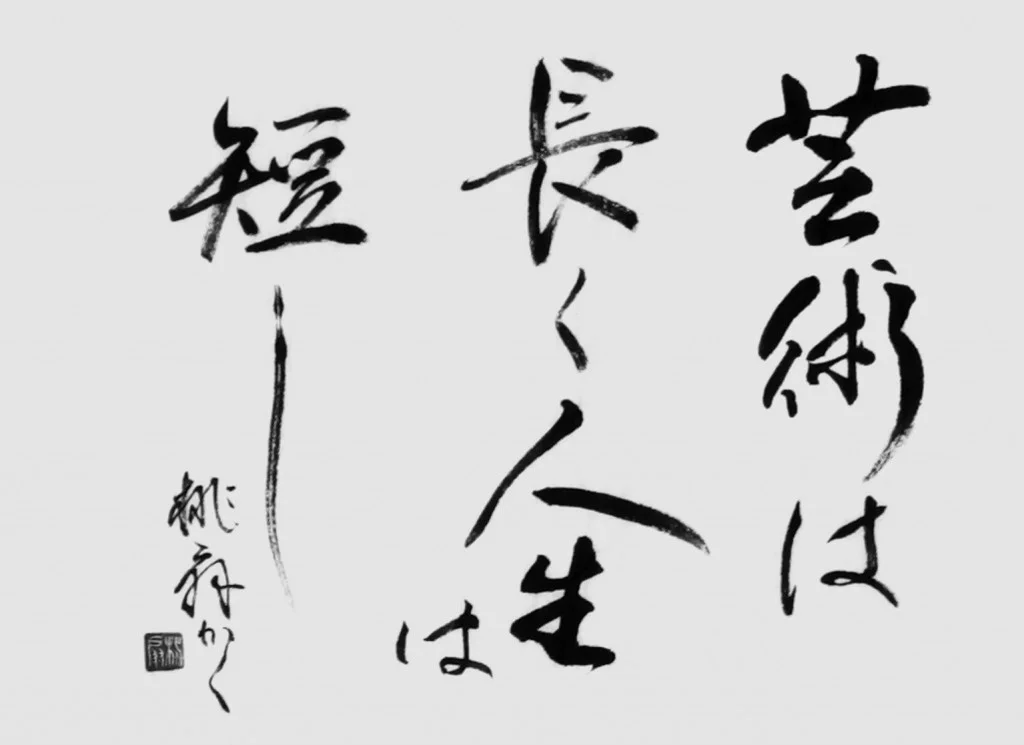 芸術は
長く人生は
短し
桃舜かく